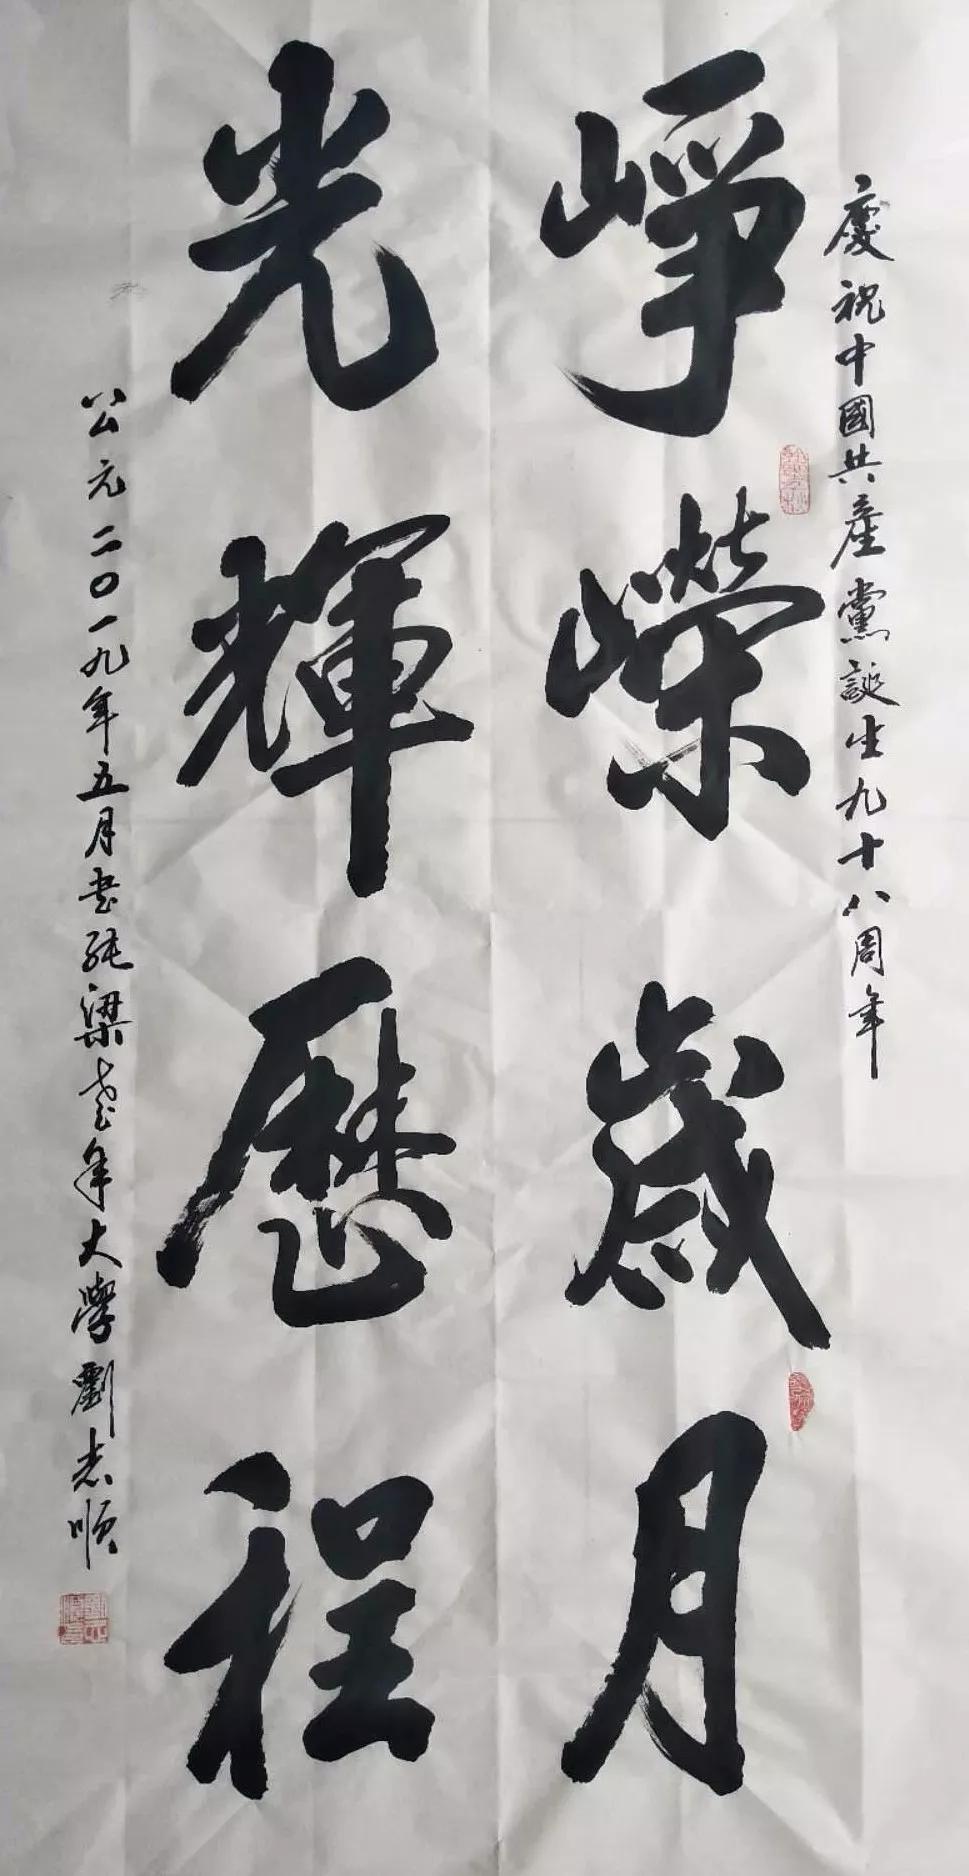 慶祝中國共產黨誕生九十八周年
崢嶸歲月
光輝歷程
公元二〇一九年五月书於梁老年大學劉志順